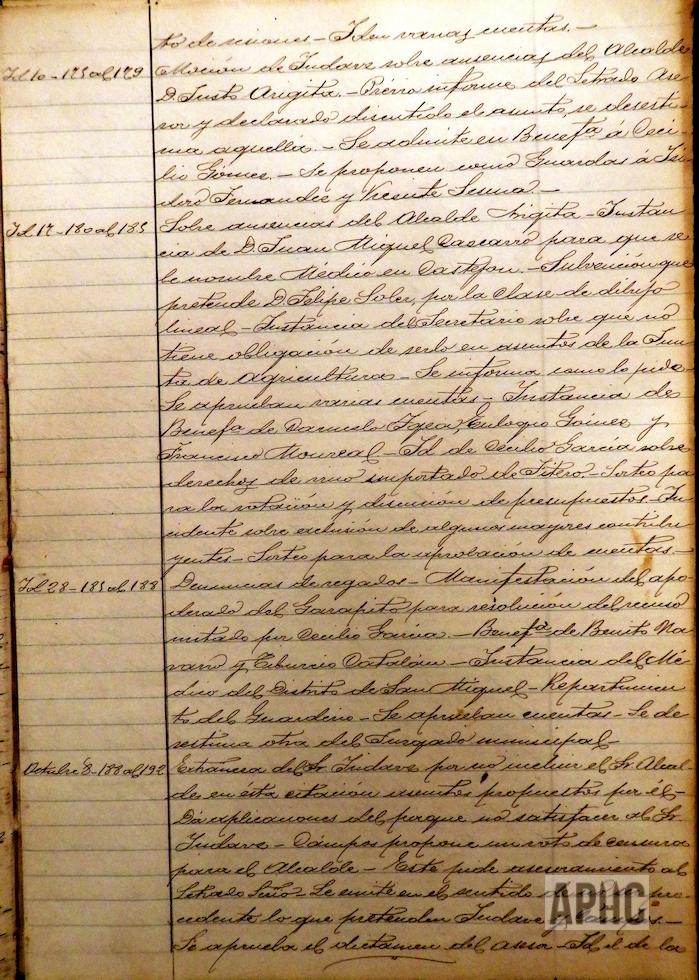 to de sesiones - Idem varias cuentas. -
Id 10 - 175 al 179 Moción de Indave sobre ausencias del Alcalde
D. Justo Argita. - Prévio informe del Letrado Ase-
sor y declarado discutido el asunto, se desesti-
ma aquella. - Se admite en Benefa á Ceci-
lio Gómez. - Se proponen como Guardas á Isi-
doro Fernandez y Vicente
Id 17 - 180 al 185 Sobre ausencias del Alcalde Argita - Instan-
cia de D. Juan Miguel Cascarro para que se
le nombre Médico en Castejon. - Subvención que
pretende D. Felipe Soler, por la Clase de dibujo
lineal - Instancia del Secretario sobre que no
tiene obligación de serlo en asuntos de la Jun-
ta de Agricultura - Se informa como lo pide
Se aprueban varias cuentas - Instancia de
Benefa de Igea, Eulogio Gómez y
Francisco Monreal - Id de Cecilio García sobre
derechos de vino importado de Fitero. - Sorteo pa-
ra la votación y discusión de presupuestos - In-
cidente sobre exclusión de algunos mayores contribu-
yentes - Sorteo para la aprobación de cuentas -
Id 28 - 185 al 188 Denuncias de regados - Manifestación del apo-
derado del Garapito para resolución del recurso
incitado por Cecilio García. - Benefa de Benito Na-
varro y Tiburcio Catalán - Instancia del Mé-
dico del Distrito de San Miguel - Repartimien-
to del Guarderio - Se aprueban cuentas - Se de-
sestima otra del Juzgado municipal
Octubre 8 - 188 al 192 Extrañeza del Sr. Indave por no incluir el Sr. Alcal-
de en esta citación asuntos propuestos por él -
Dá esplicaciones del porque no satisfacer al Sr.
Indave - Campos propone un voto de censura
para el Alcalde - Este pide asesoramiento al
Letrado Sr. - Se emite en el sentido
cedente lo que pretenden Indave y Campos -
Se aprueba el dictamen del asesor - Id el de la
APHC